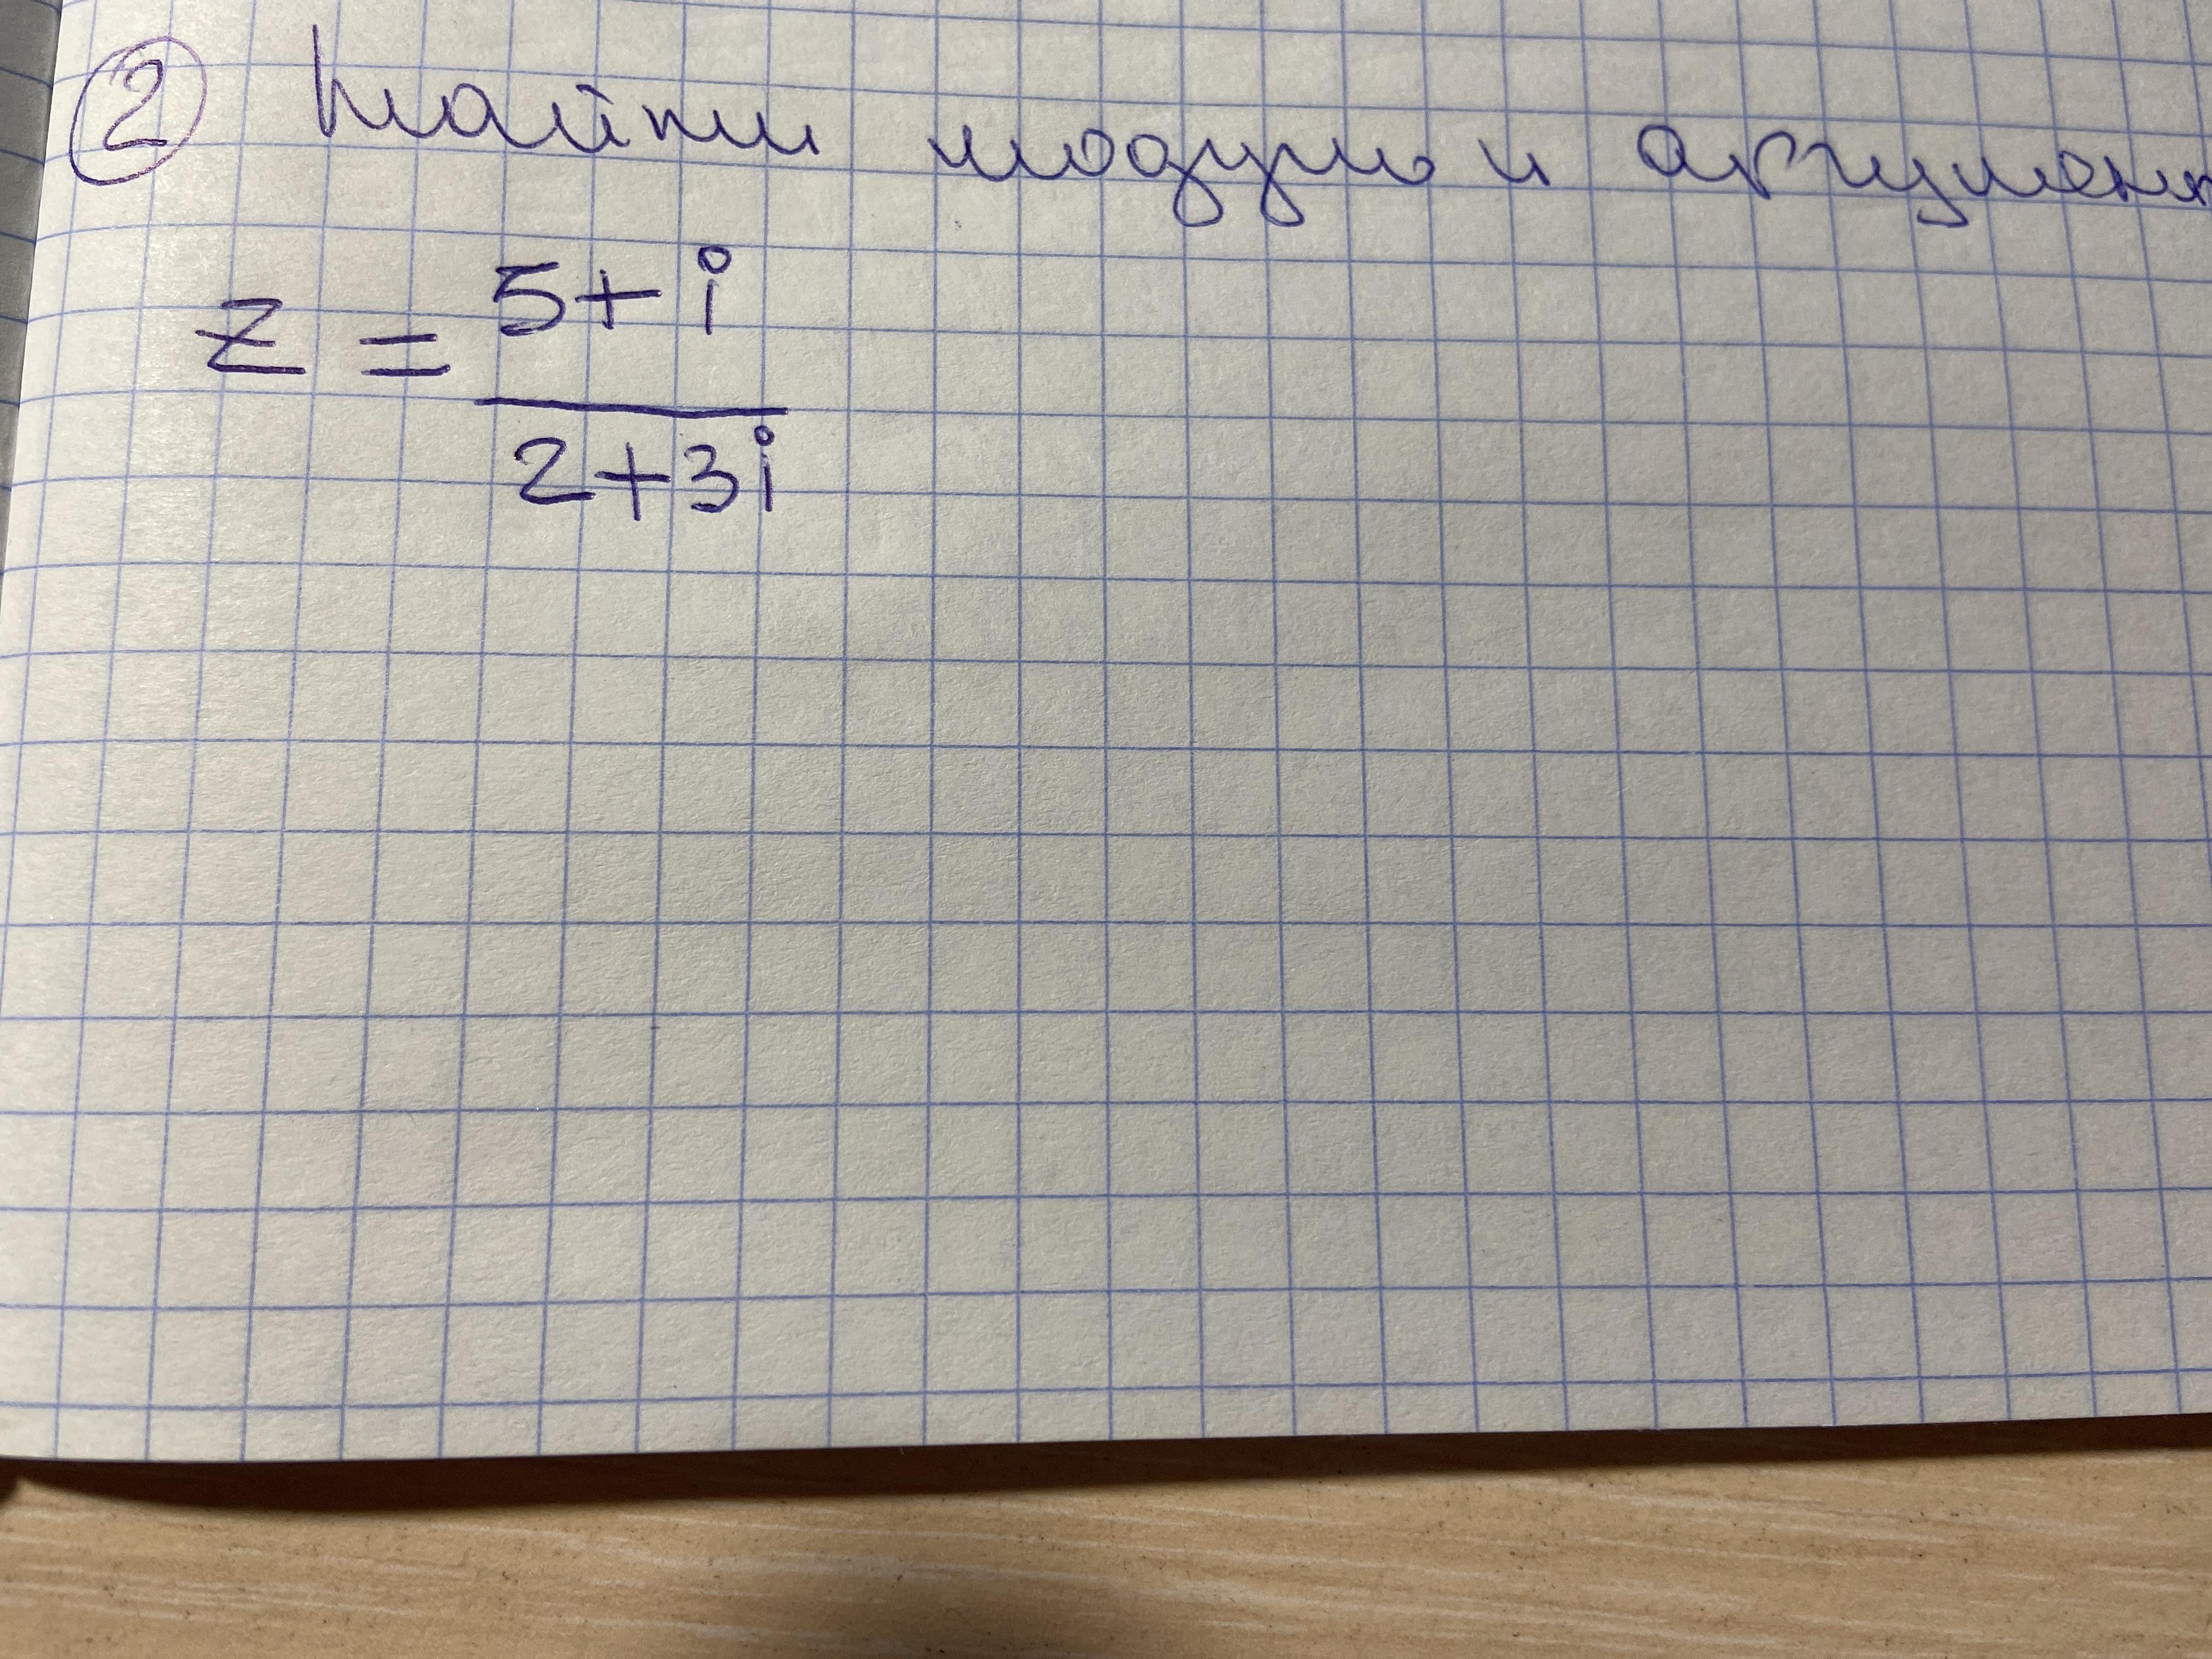 ② Найти модуль и аргумент
z = 5+i
2+3i